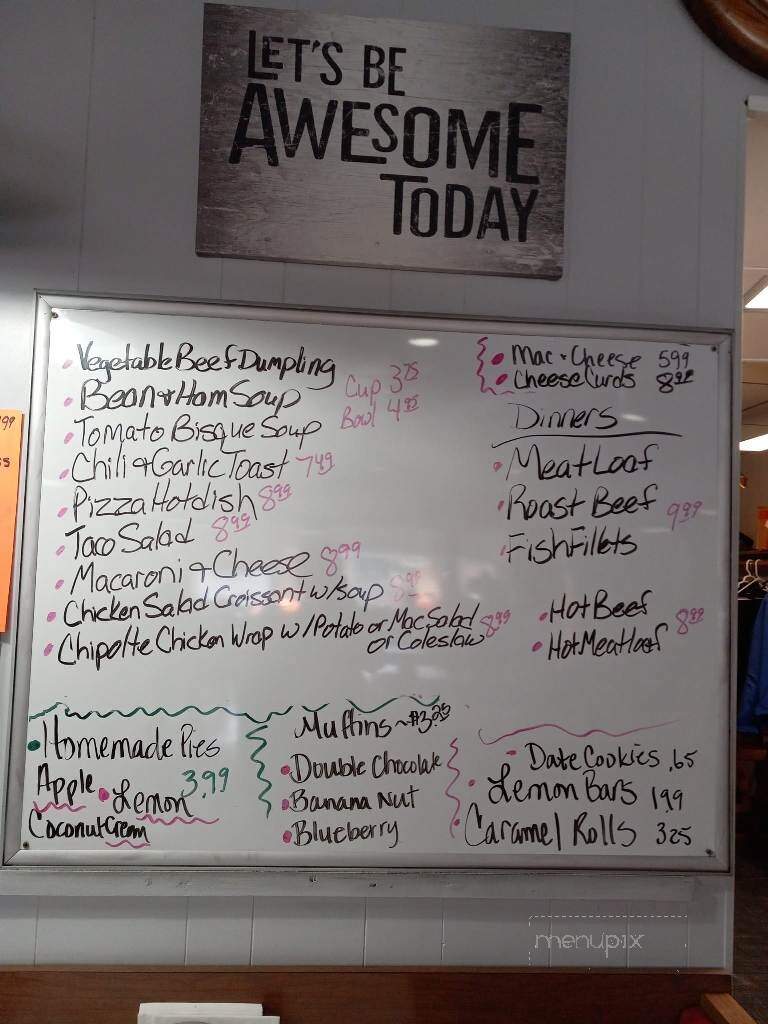 LET'S BE
AWESOME
TODAY
Vegetable Beef Dumpling
Bean & Ham Soup
Cup 3.25
Tomato Bisque Soup
Bowl 4.95
Chili & Garlic Toast 7.49
Pizza Hotdish 8.99
Taco Salad 8.99
Macaroni & Cheese 8.99
Chicken Salad Croissant w/soup 8.99
Chipolte Chicken Wrap w/Potato or Mac Salad 8.99
or Coleslaw
Mac & Cheese 5.99
Cheese Curds 8.99
Dinners
Meat Loaf
Roast Beef 9.99
Fish Fillets
Hot Beef
Hot Meatloaf 8.99
Homemade Pies
3.99
Apple
Lemon
Coconut Cream
Muffins ~ $3.25
Double Chocolate
Banana Nut
Blueberry
Date Cookies .65
Lemon Bars 1.99
Caramel Rolls 3.25
99
menupix